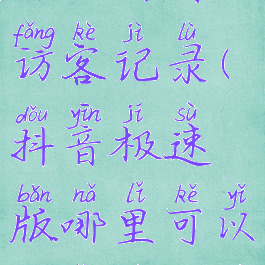 fǎng kè jì lù
访客记录(
dǒu yīn jí sù
抖音极速
bǎn nǎ lǐ kě yǐ
版哪里可以